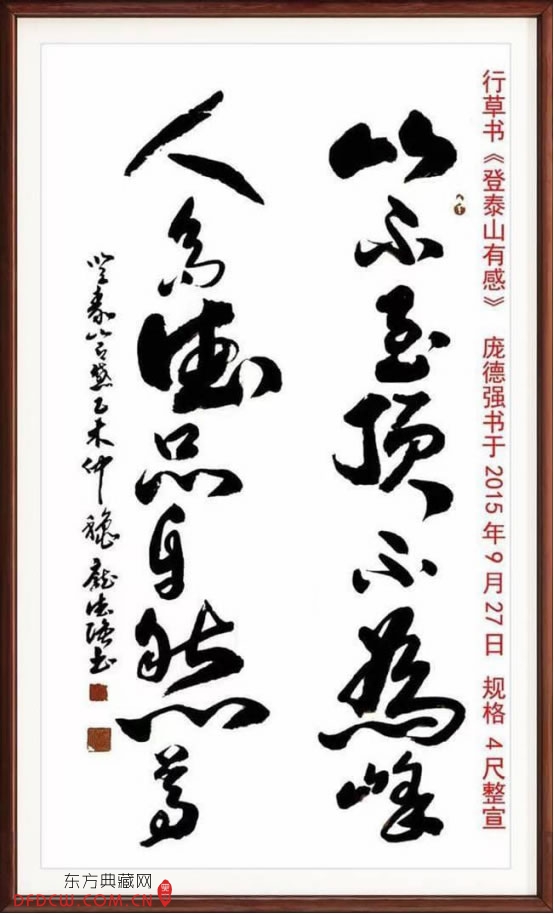 行草书《登泰山有感》 庞德强书于2015年9月27日 规格 4尺整宣
山不至顶不为峰
人为德品自然尊
登泰山有感乙未仲秋庞德强书
东方典藏网
DFDCW.COM.CN